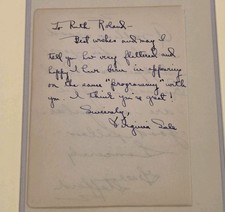 To Ruth Roland —
Best wishes and may I
tell you how very flattered and
happy I have been in appearing
on the same "programming" with
you — I think you're great!
Sincerely,
Virginia Sale